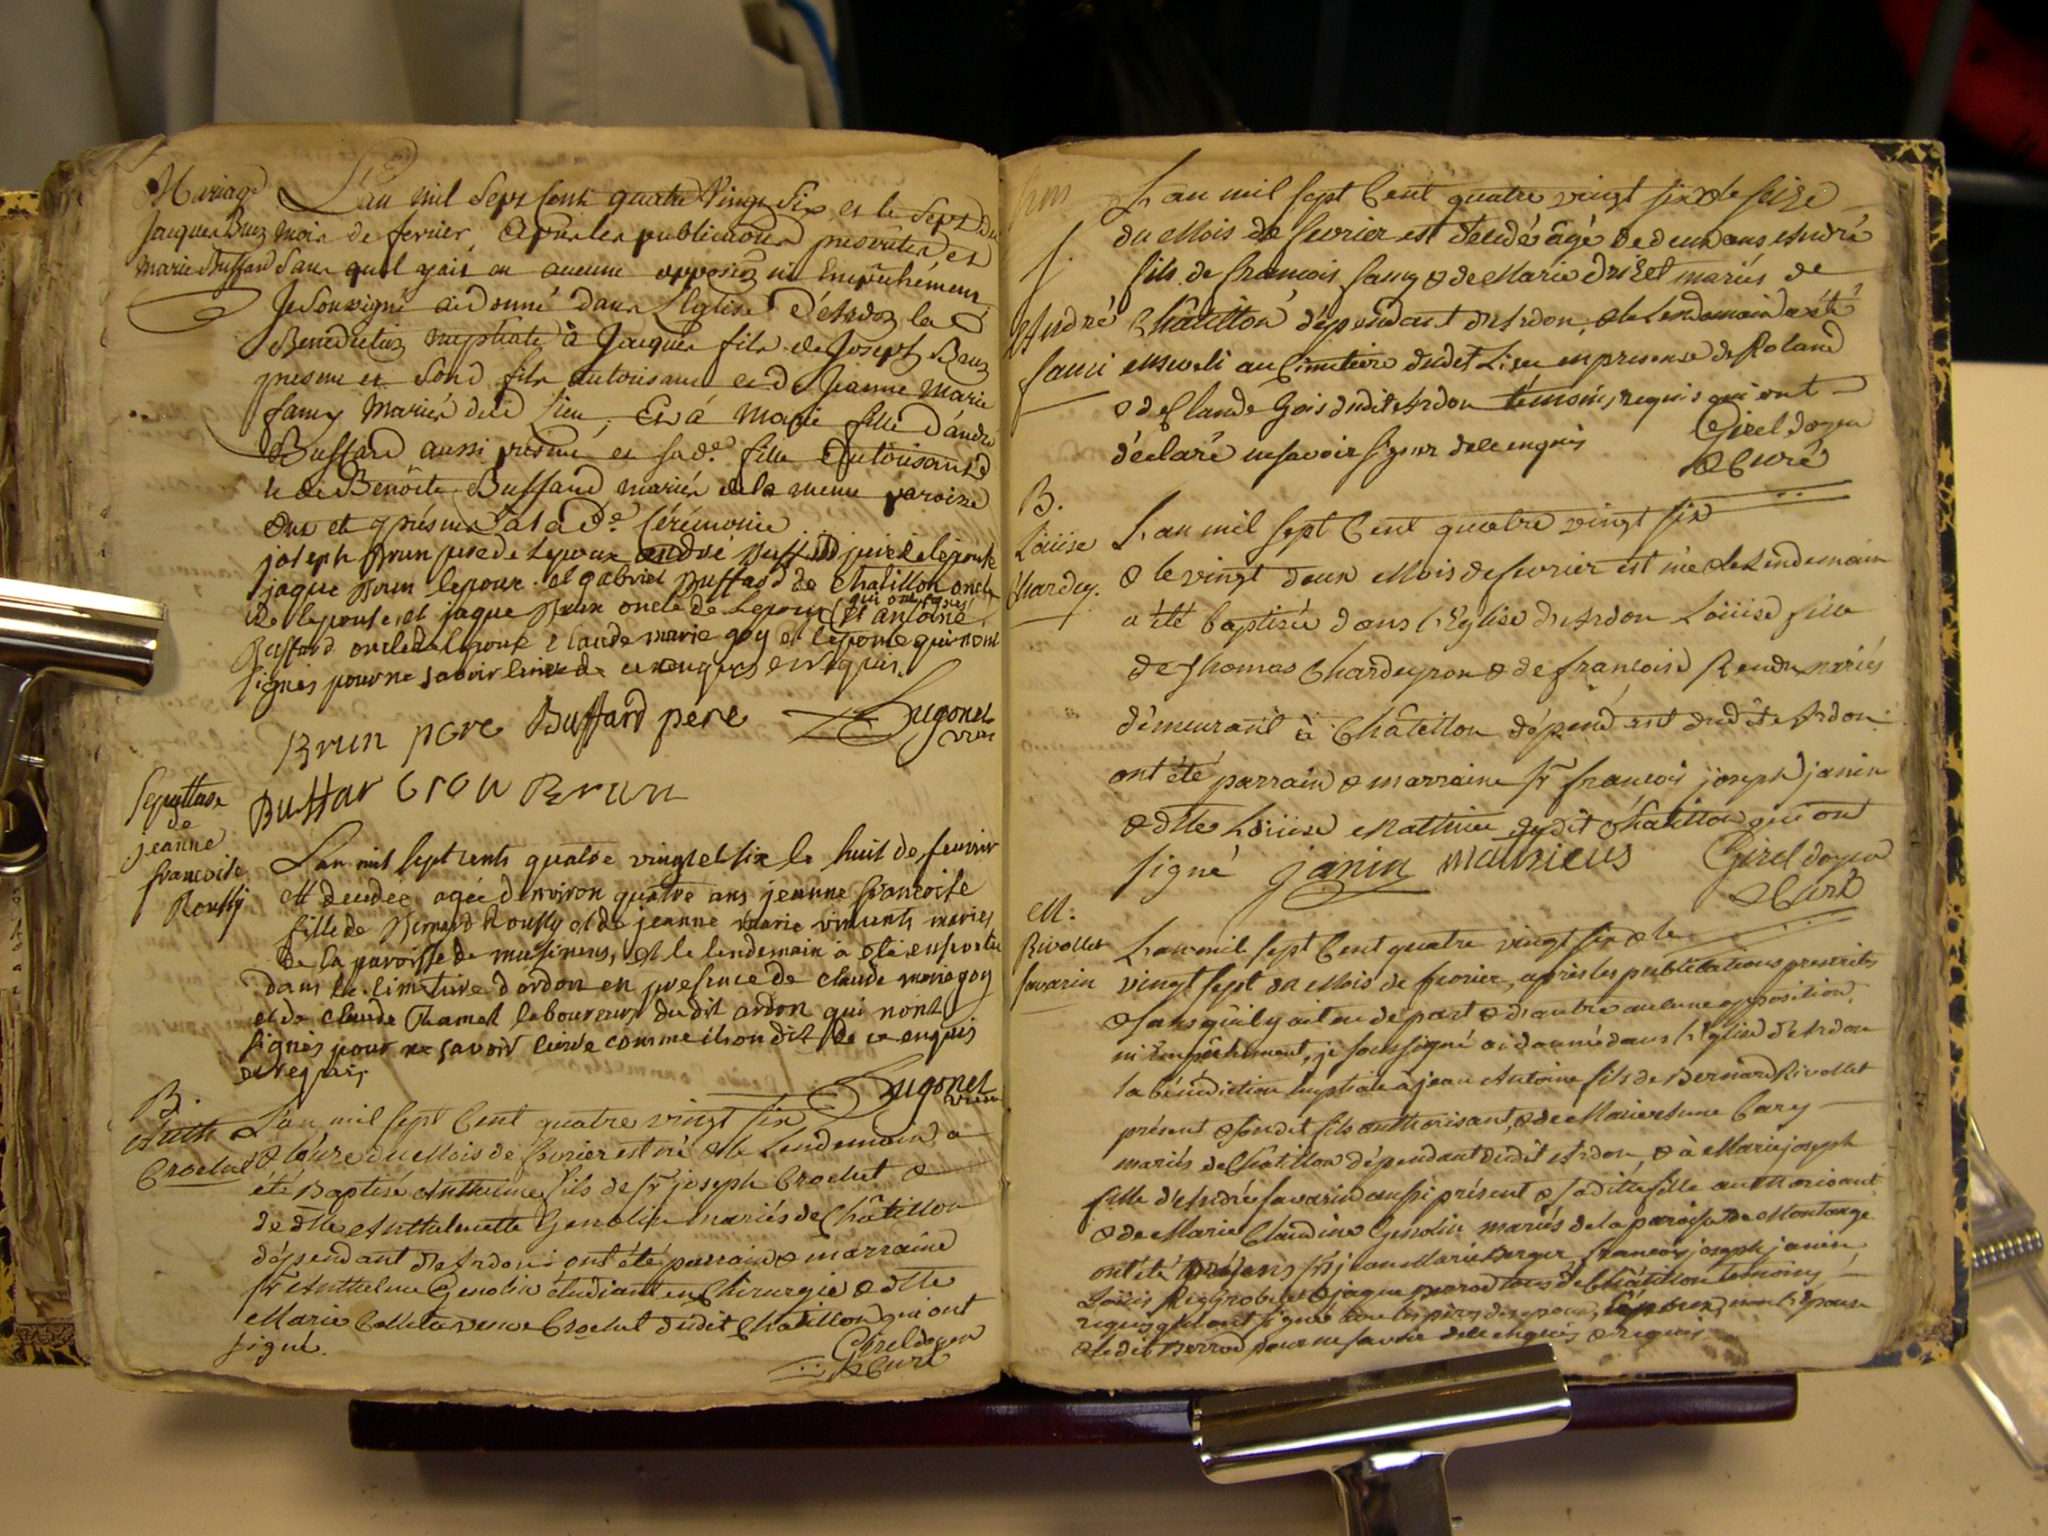 Mariage
Jacques Brun
Marie Buffard
L'an mil Sept Cent quatre Vingt Six et le Sept du
mois de fevrier, Apres les publications prescrites et
Sans quil y ait eu aucune opposi͠on ni Empêchément,
Je Soussigné ai donné dans L'Eglise d'Ardon la
Benediction nuptiale à Jacques fils de Joseph Brun
present et Sond fils autorisant et de Jeanne Marie
famy Mariés dud Lieu, Et à Marie fille d'andré
Buffard aussi présent et sade. fille autorisant
et de Benoite Buffard mariés de la meme paroisse
joseph Brun pere de Lepoux andré Buffard pere de lepouse
jaque Brun lepoux et gabriel Buffard de Chatillon oncle
de lepouse, et jaque Brun oncle de Lepoux qui ont signés Et antoine
Buffard oncle de lepouse claude marie goy et lepouse qui nont
signés pour ne savoir lire de ce enquis et requis.
Brun pere Buffard pere Hugonet
vicaire
Buffar Brun
Sepulture
de
jeanne
francoise
Roussy
L'an mil sept cents quatre vingt et six le huit de fevrier
est decedee agée d'environ quatre ans jeanne francoise
fille de Bernard Roussy et de jeanne marie vincents mariés
de la paroisse de musinens, et le lendemain à été ensevelie
dans le cimetiere d'ardon en presence de claude marie goy
et de claude Thamet laboureurs dudit ardon qui nont
signés pour ne savoir lire comme ils on dit de ce enquis
et requis,
Hugonet
vicaire
B.
Anth
Crochet
L'an mil sept Cent quatre vingt six
& le onze du Mois de fevrier est né & le Lendemain a
été Baptisé Anthelme fils de sr joseph Crochet &
de dlle Anthelmette Genolin mariés de Châtillon
dépendant d'Ardon: ont été parrain & marraine
sr Anthelme Genolin étudiant en Chirurgie & dlle
Marie Crochet dudit Chatillon qui ont
signé. Girel doyen
& Curé
f.
André
famy
L'an mil sept Cent quatre vingt six & le seize
du Mois de fevrier est decedé âgé de deux ans André
fils de francois famy & de Marie mariés de
Châtillon dépendant d'Ardon, & le Lendemain a été
enseveli au Cimetiere dudit Lieu en presense de Roland
& de Claude Gois dudit Ardon témoins requis qui ont
déclaré ne savoir signer de ce enquis Girel doyen
& Curé
B.
Loüise
Chardey.
L'an mil sept Cent quatre vingt six
& le vingt deux Mois de fevrier est née & le Lendemain
a été baptisée dans l'Eglise d'Ardon Loüise fille
de Thomas Chardeyron & de francoise Rendu mariés
démeurant à Châtillon dépendant dudit Ardon
ont été parrain & marraine sr francois joseph janin
& dlle Loüise Mathieu dudit Chatillon qui on
signé janin mathieus Girel doyen
& Curé
M.
Rivollet
favarin
L'an mil sept Cent quatre vingt six & le
vingt sept du Mois de fevrier, après les publications prescrites
& sans qu'il y ait eu de part & d'autre aucune opposition,
ni Empêchement, je soussigné ai donné dans l'Eglise d'Ardon
la bénédiction nuptiale à jean Antoine fils de Bernard Rivollet
présent & sondit fils authorisant, & de Marie Anne Cary
mariés de Châtillon dépendant dudit Ardon, & à Marie joseph
fille d'André favarin aussi présent & sadite fille authorisant
& de Marie Claudine Genolin mariés de la paroisse de Montange
ont été présens srs jean Marie Berger, francois joseph janin,
Loüis & jaque perrod tous de Châtillon témoins
requis qui ont signé avec les peres des epoux, non l'épouse
& ledit perrod pour ne savoir de ce enquis & requis